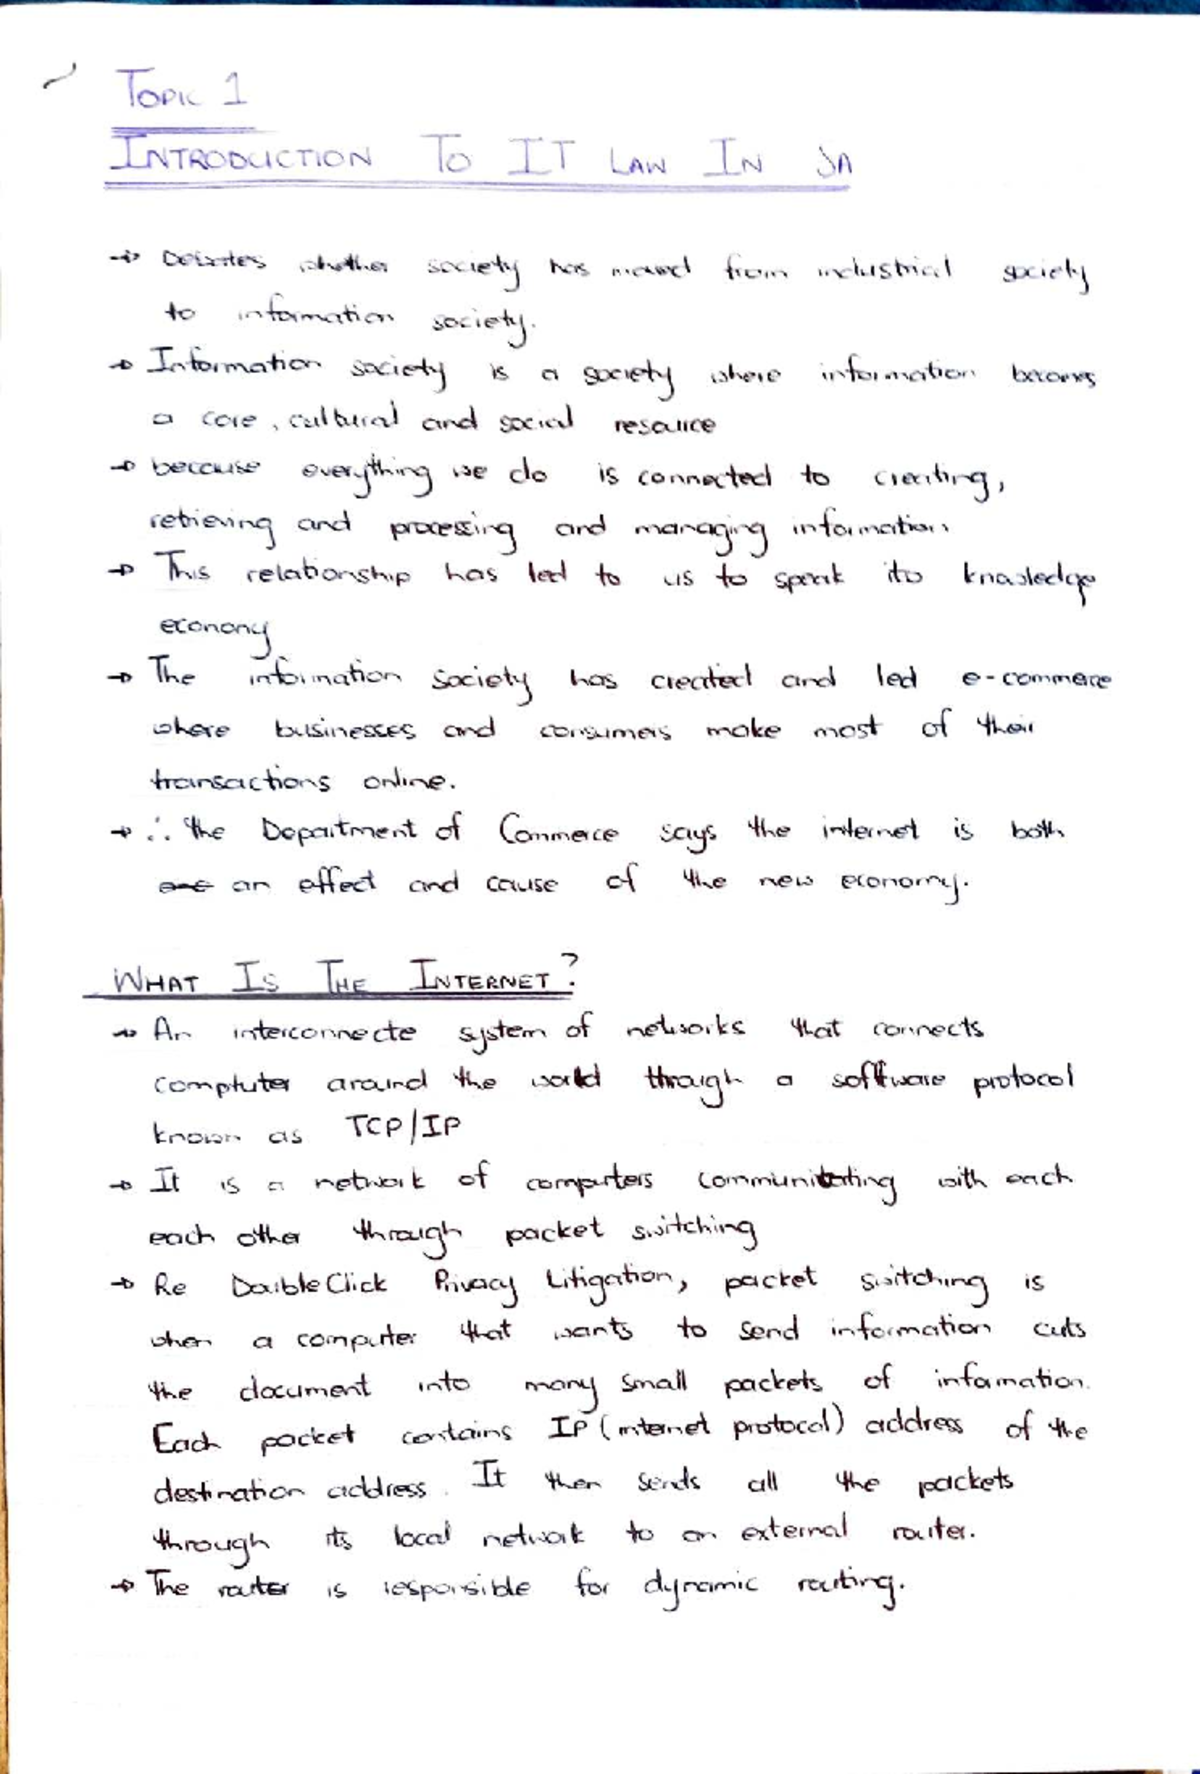 TOPIC 1
INTRODUCTION TO IT LAW IN SA
→ Debates whether society has moved from industrial society
to information society.
→ Information society is a society where information becomes
a core, cultural and social resource
→ because everything we do is connected to creating,
retrieving and processing and managing information
→ This relationship has led to us to speak ito knowledge
economy
→ The information society has created and led e-commerce
where businesses and consumers make most of their
transactions online.
→ ∴ the Department of Commerce says the internet is both
an effect and cause of the new economy.
WHAT IS THE INTERNET?
→ An interconnecte system of networks that connects
comptuter around the world through a software protocol
known as TCP/IP
→ It is a network of computers communicating with each
each other through packet switching
→ Re DoubleClick Privacy Litigation, packet switching is
when a computer that wants to send information cuts
the document into many small packets of information.
Each packet contains IP (internet protocol) address of the
destination address. It then sends all the packets
through its local network to an external router.
→ The router is responsible for dynamic routing.